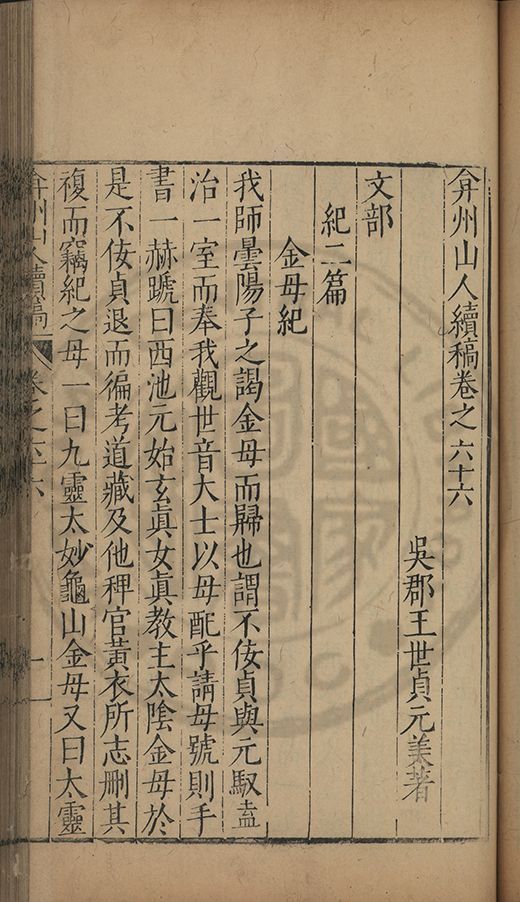 弇州山人續稿卷之六十六
吳郡王世貞元美著
文部
紀二篇
金母紀
我師曇陽子之謁金母而歸也謂不佞貞與元馭盍
治一室而奉我觀世音大士以母配乎請母號則手
書一赫蹏曰西池元始玄眞女眞教主太陰金母於
是不佞貞退而徧考道藏及他稗官黃衣所志刪其
複而竊紀之母一曰九靈太妙龜山金母又曰太靈
弇州山人續稿 卷之六十六 一